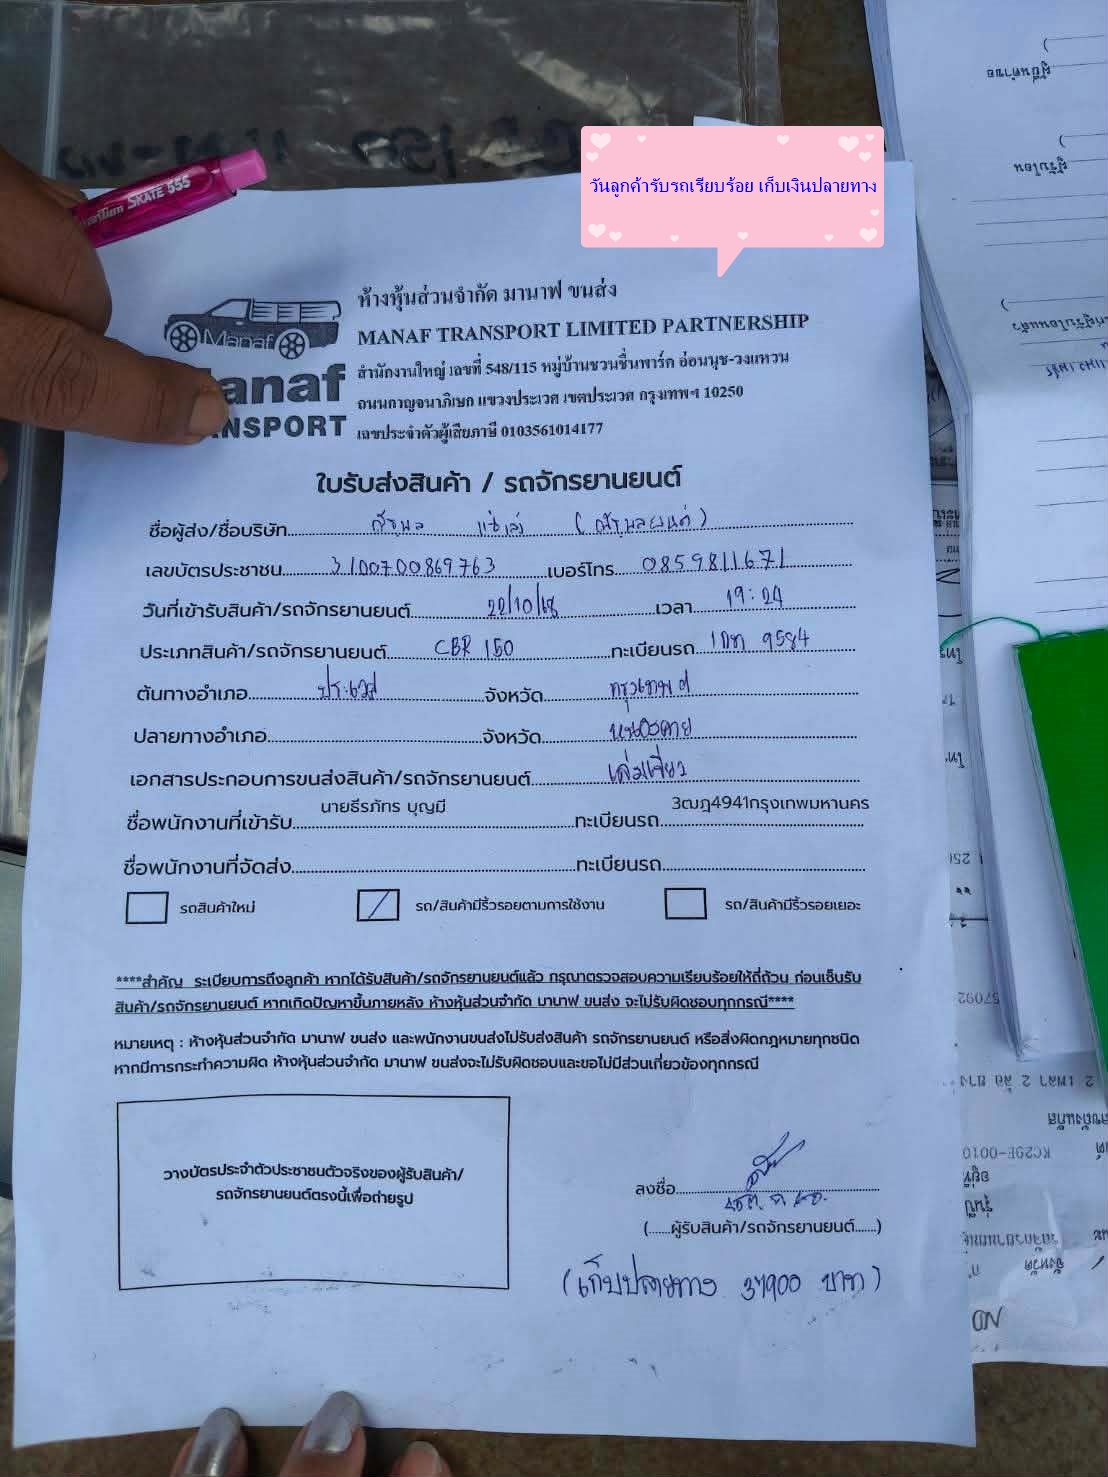 วันลูกค้ารับรถเรียบร้อย เก็บเงินปลายทาง
SKATE 555
Manaf
ห้างหุ้นส่วนจำกัด มานาฟ ขนส่ง
MANAF TRANSPORT LIMITED PARTNERSHIP
สำนักงานใหญ่ เลขที่ 548/115 หมู่บ้านชวนชื่นพาร์ค อ่อนนุช-วงแหวน
ถนนกาญจนาภิเษก แขวงประเวศ เขตประเวศ กรุงเทพฯ 10250
เลขประจำตัวผู้เสียภาษี 0103561014177
ใบรับส่งสินค้า / รถจักรยานยนต์
ชื่อผู้ส่ง/ชื่อบริษัท
เลขบัตรประชาชน 3100700869763 เบอร์โทร 0859811671
วันที่เข้ารับสินค้า/รถจักรยานยนต์ 22/10/68 เวลา 19:24
ประเภทสินค้า/รถจักรยานยนต์ CBR 150 ทะเบียนรถ 9584
ต้นทางอำเภอ ประเวศ จังหวัด กรุงเทพฯ
ปลายทางอำเภอ จังหวัด หนองคาย
เอกสารประกอบการขนส่งสินค้า/รถจักรยานยนต์ เล่มเขียว
ชื่อพนักงานที่เข้ารับ นายธีรภัทร บุญมี ทะเบียนรถ 3ฒฎ4941กรุงเทพมหานคร
ชื่อพนักงานที่จัดส่ง ทะเบียนรถ
รถสินค้าใหม่ รถ/สินค้ามีริ้วรอยตามการใช้งาน รถ/สินค้ามีริ้วรอยเยอะ
****สำคัญ ระเบียบการถึงลูกค้า หากได้รับสินค้า/รถจักรยานยนต์แล้ว กรุณาตรวจสอบความเรียบร้อยให้ถี่ถ้วน ก่อนเซ็นรับ
สินค้า/รถจักรยานยนต์ หากเกิดปัญหาขึ้นภายหลัง ห้างหุ้นส่วนจำกัด มานาฟ ขนส่ง จะไม่รับผิดชอบทุกกรณี****
หมายเหตุ : ห้างหุ้นส่วนจำกัด มานาฟ ขนส่ง และพนักงานขนส่งไม่รับส่งสินค้า รถจักรยานยนต์ หรือสิ่งผิดกฎหมายทุกชนิด
หากมีการกระทำความผิด ห้างหุ้นส่วนจำกัด มานาฟ ขนส่งจะไม่รับผิดชอบและขอไม่มีส่วนเกี่ยวข้องทุกกรณี
วางบัตรประจำตัวประชาชนตัวจริงของผู้รับสินค้า/
รถจักรยานยนต์ตรงนี้เพื่อถ่ายรูป
ลงชื่อ
(......ผู้รับสินค้า/รถจักรยานยนต์......)
(เก็บปลายทาง 37900 บาท)